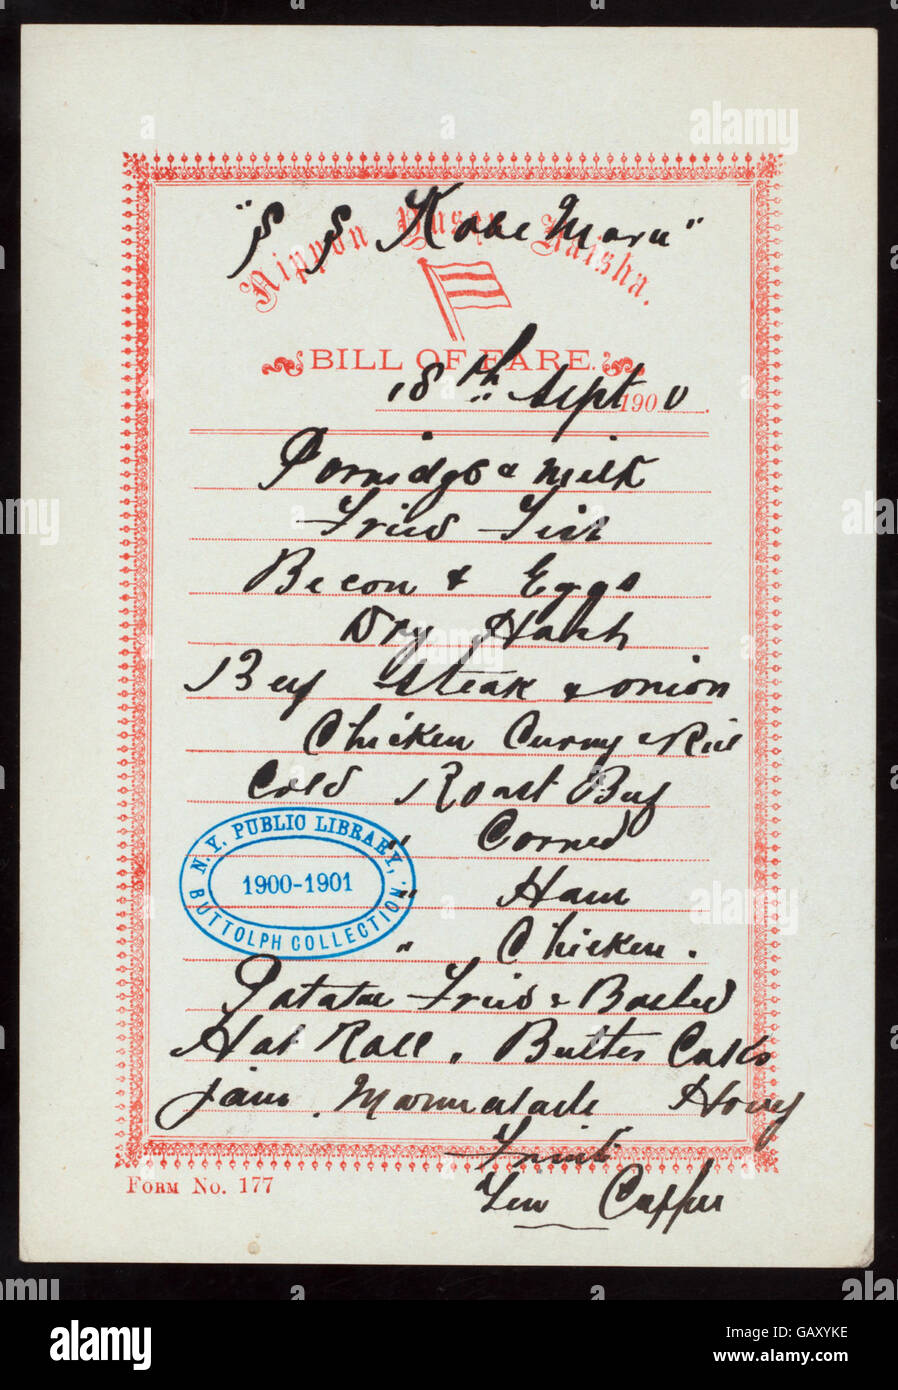 "S S Kobe Maru"
Nippon Yusen Kaisha.
BILL OF FARE.
18th Sept 1900
Porridge & Milk
Fried Fish
Becon & Eggs
Dry Hash
Beef Steak & onion
Chicken Curry & Rice
Cold Roast Beef
" Corned
" Ham
" Chicken.
N.Y. PUBLIC LIBRARY,
1900-1901
BUTTOLPH COLLECTION.
Potatoe Fried & Boiled
Hot Roll. Butter Cakes
Jam. Marmalade Honey
Fruit
Tea Coffee
FORM NO. 177
alamy
alamy
alamy
alamy
Image ID: GAXYKE
www.alamy.com